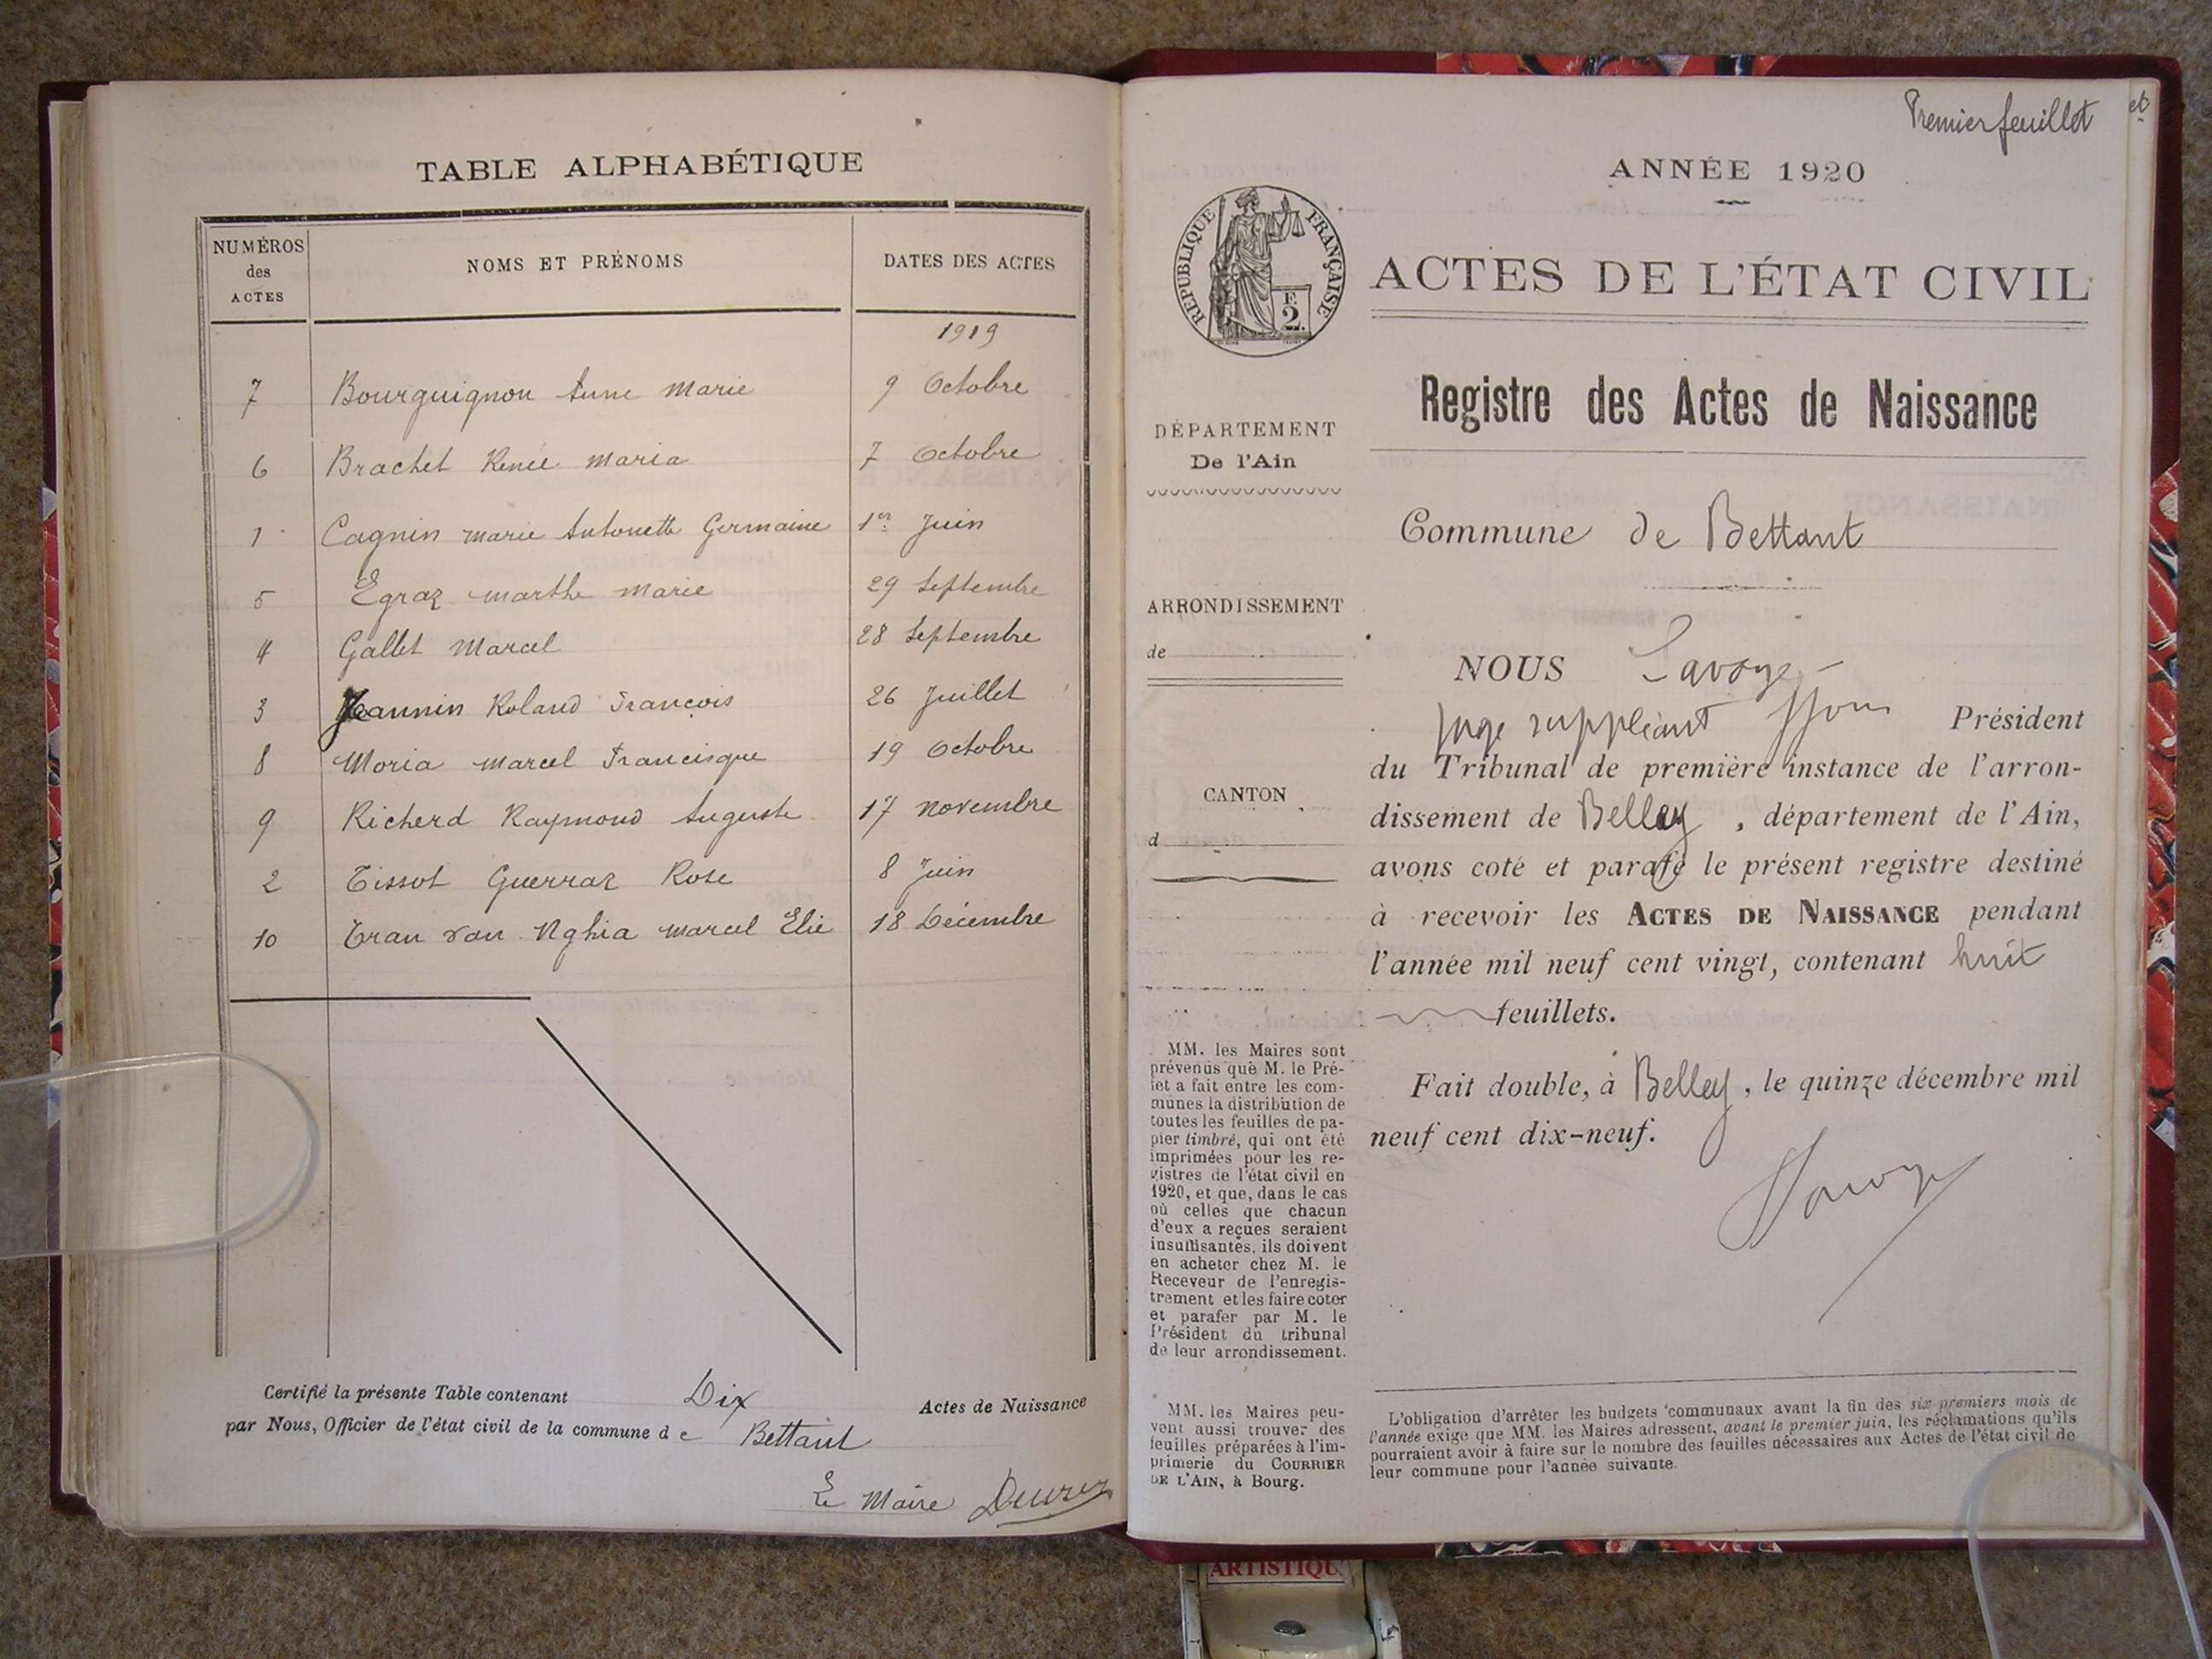 TABLE ALPHABÉTIQUE
NUMÉROS des ACTES NOMS ET PRÉNOMS DATES DES ACTES
1919
7 Bourguignon Anne Marie 9 Octobre
6 Brachet Renée Maria 7 Octobre
1 Cagnin Marie Antonette Germaine 1er Juin
5 Egraz Marthe Marie 29 Septembre
4 Gallet Marcel 28 Septembre
3 Jeannin Roland François 26 Juillet
8 Moria Marcel Francisque 19 Octobre
9 Richerd Raymond Auguste 17 Novembre
2 Tissot Guerraz Rose 8 Juin
10 Tran van Nghia Marcel Elie 18 Décembre
Certifié la présente Table contenant Dix Actes de Naissance
par Nous, Officier de l'état civil de la commune de Bettant
Le Maire
Premier feuillet
et
ANNÉE 1920
RÉPUBLIQUE FRANÇAISE
F.
2.
ACTES DE L'ÉTAT CIVIL
Registre des Actes de Naissance
DÉPARTEMENT
De l'Ain
Commune de Bettant
ARRONDISSEMENT
de
CANTON
d
NOUS Savoye
juge suppléant Président
du Tribunal de première instance de l'arron-
dissement de Belley, département de l'Ain,
avons coté et parafé le présent registre destiné
à recevoir les ACTES DE NAISSANCE pendant
l'année mil neuf cent vingt, contenant huit
feuillets.
Fait double, à Belley, le quinze décembre mil
neuf cent dix-neuf.
Savoye
MM. les Maires sont
prévenus que M. le Pré-
fet a fait entre les com-
munes la distribution de
toutes les feuilles de pa-
pier timbré, qui ont été
imprimées pour les re-
gistres de l'état civil en
1920, et que, dans le cas
où celles que chacun
d'eux a reçues seraient
insuffisantes, ils doivent
en acheter chez M. le
Receveur de l'enregis-
trement et les faire coter
et parafer par M. le
Président du tribunal
de leur arrondissement.
MM. les Maires peu-
vent aussi trouver des
feuilles préparées à l'im-
primerie du COURRIER
DE L'AIN, à Bourg.
L'obligation d'arrêter les budgets communaux avant la fin des six premiers mois de
l'année exige que MM. les Maires adressent, avant le premier juin, les réclamations qu'ils
pourraient avoir à faire sur le nombre des feuilles nécessaires aux Actes de l'état civil de
leur commune pour l'année suivante.
ARTISTIQU